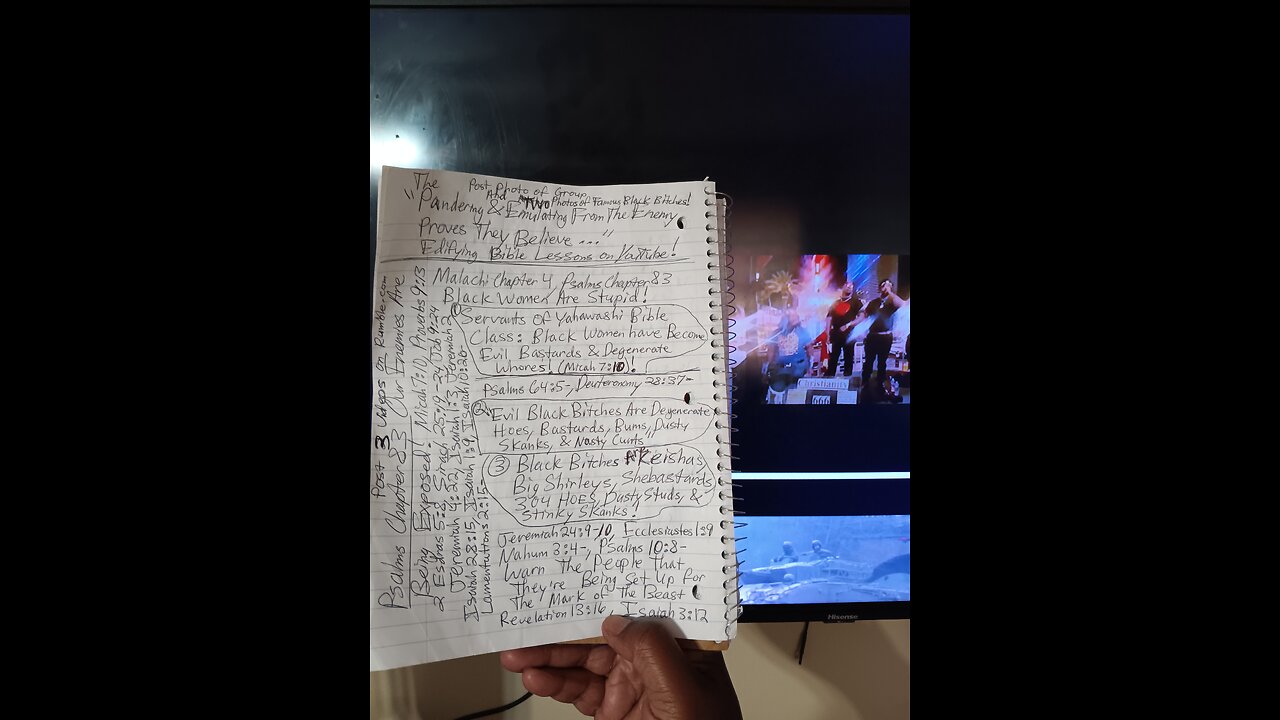 Post Photo of Group
And TWO Photos of Famous Black Bitches!
"The
Pandering & Emulating From The Enemy
Proves They Believe..."
Edifying Bible Lessons on YouTube!
Malachi Chapter 4, Psalms Chapter 83
Black Women Are Stupid!
① Servants of Yahawashi Bible
Class: Black Women have Become
Evil Bastards & Degenerate
Whores! (Micah 7:10).
Psalms 64:5-, Deuteronomy 28:37-
② Evil Black Bitches Are Degenerate
Hoes, Bastards, Bums, Dusty
Skanks, & Nasty Cunts"
③ Black Bitches Keishas,
Big Shirleys, Shebastards,
304 HOES, Dusty Studs, &
Stinky Skanks!
Jeremiah 24:9-10, Ecclesiastes 1:9
Nahum 3:4-, Psalms 10:8-
Warn The People That
They're Being Set Up for
The Mark of The Beast
Revelation 13:16, Isaiah 3:12
Post 3 Videos on Rumble.com
Psalms Chapter 83 Our Enemies Are
Being Exposed! Micah 7:10, Proverbs 9:13
2 Esdras 5:8, Sirach 25:19-24, Job 9:24
Jeremiah 4:22, Isaiah 1:3, Jeremiah 2
Isaiah 28:15, Isaiah 1:9, Isaiah 10:20-
Lamentations 2:15-
Christianity
666
Hisense